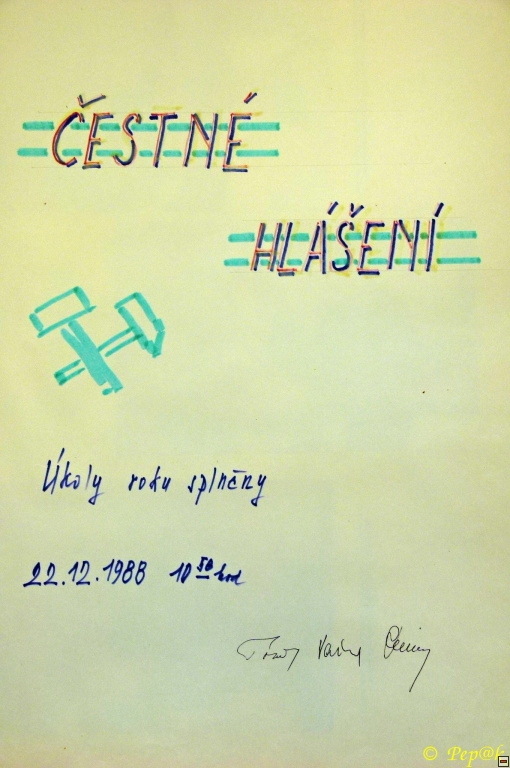 ČESTNÉ
HLÁŠENÍ
Úkoly roku splněny
22.12.1988 10 50 hod
© Pep@k